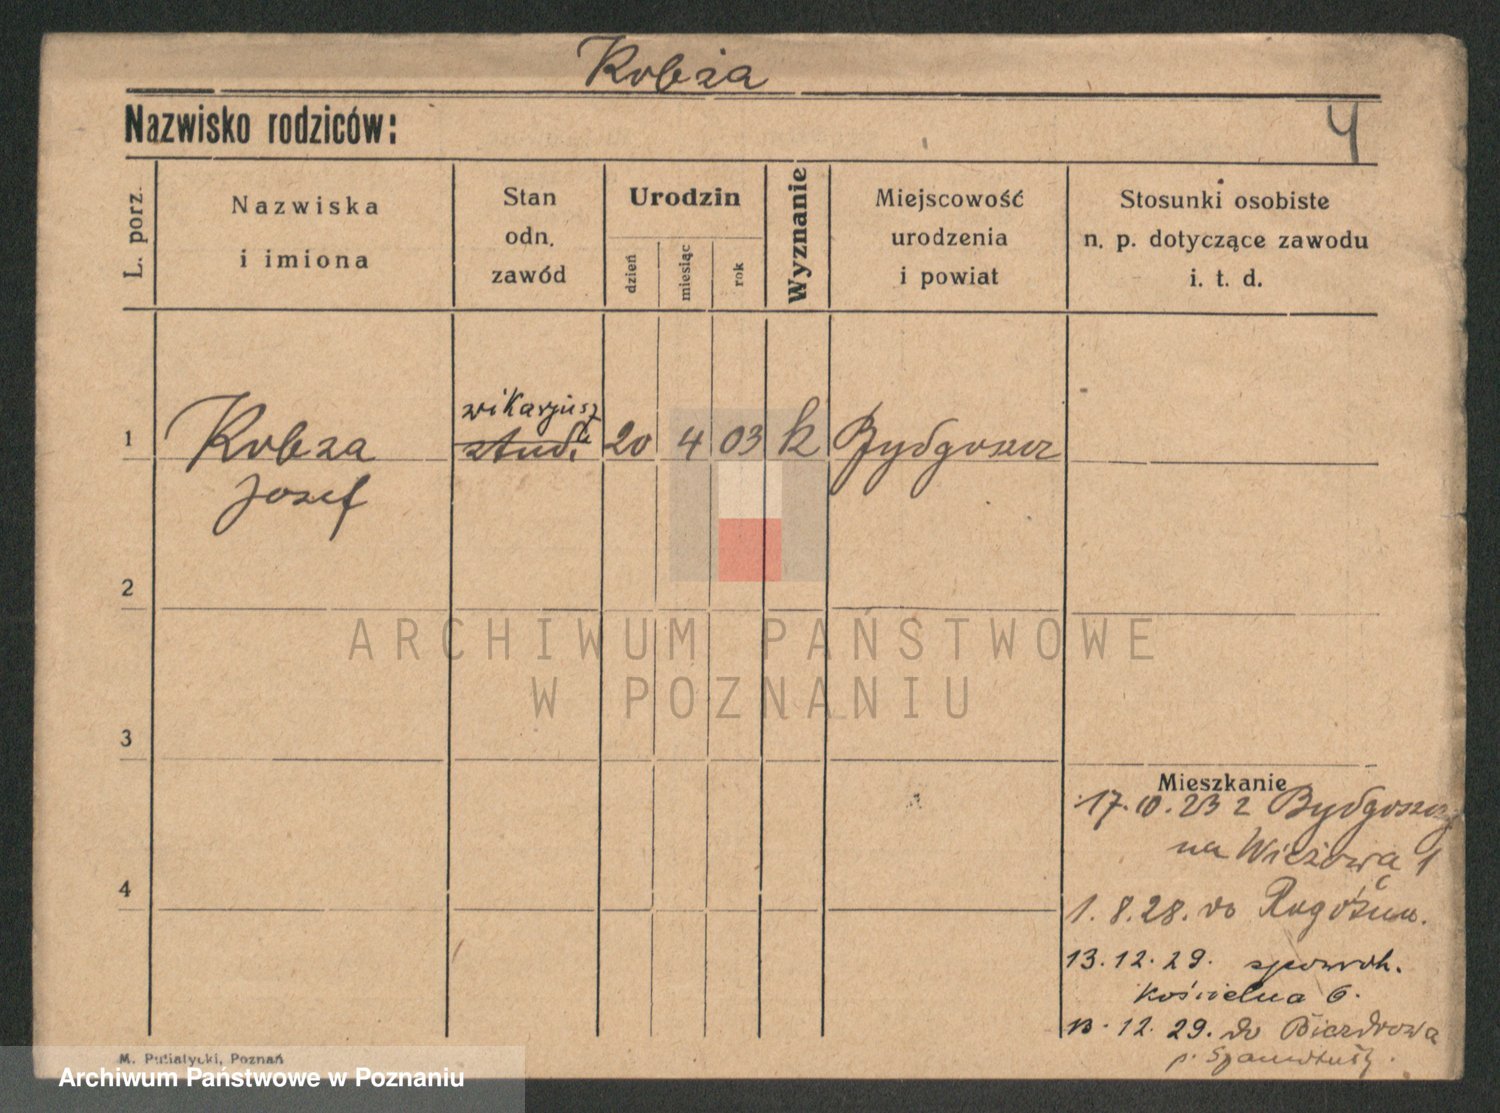 Kobża
Nazwisko rodziców:
4
L. porz.
Nazwiska
i imiona
Stan
odn.
zawód
Urodzin
dzień
miesiąc
rok
Wyznanie
Miejscowość
urodzenia
i powiat
Stosunki osobiste
n. p. dotyczące zawodu
i. t. d.
wikarjusz
1 Kobza stud. 20 4 03 k Bydgoszcz
Josef
2
3
4
ARCHIWUM PAŃSTWOWE
W POZNANIU
Mieszkanie
17.10.23 z Bydgoszczy
na Wieżową 1
1.8.28. do
13.12.29. spowroh.
Kościelna 6.
12.29. do Biezdrowa
p. Szamotuły.
M. Putiatycki, Poznań
Archiwum Państwowe w Poznaniu